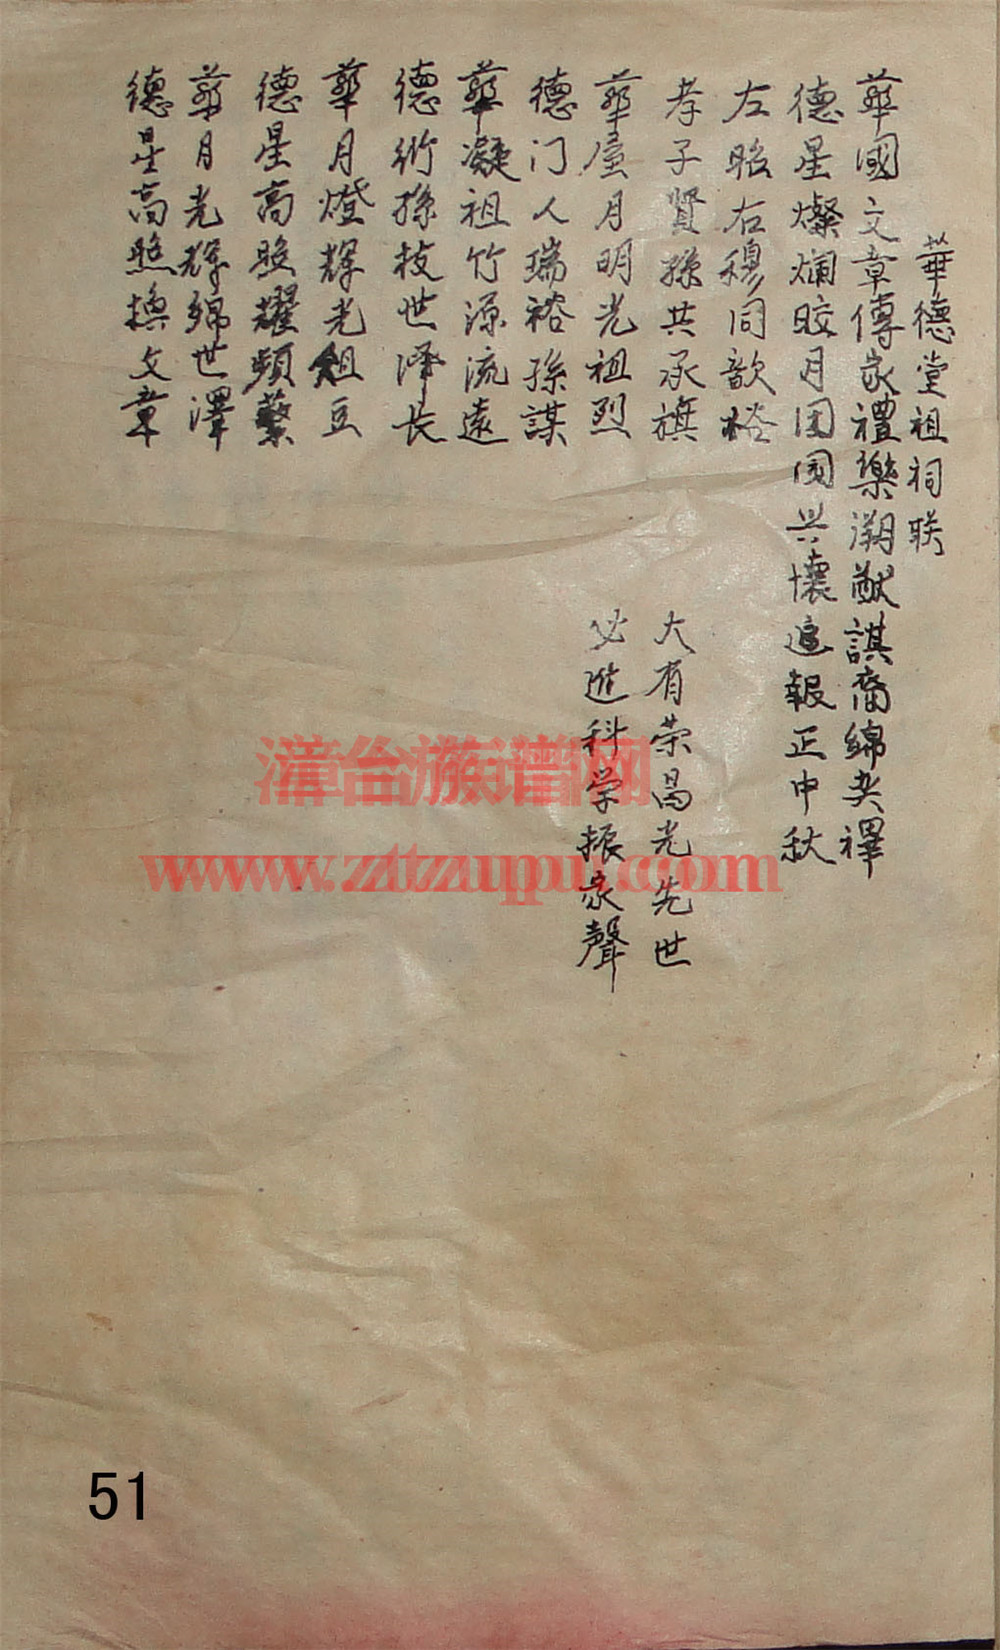 華德堂祖祠联
華國文章傳家禮樂溯猷謀裔綿奕禪
德星燦斓皎月团圆興懷追報正中秋
左昭右穆同歆格
孝子賢孫共承旗
華屋月明光祖烈
德门人瑞裕孫謀
華凝祖竹源流遠
德衍孫枝世澤长
華月燈輝光俎豆
德星高照耀頻蘩
華月光輝綿世澤
德星高照換文章
大有荣昌光先世
必進科学振家聲
漳台族谱网
www.ztzupu.com
51